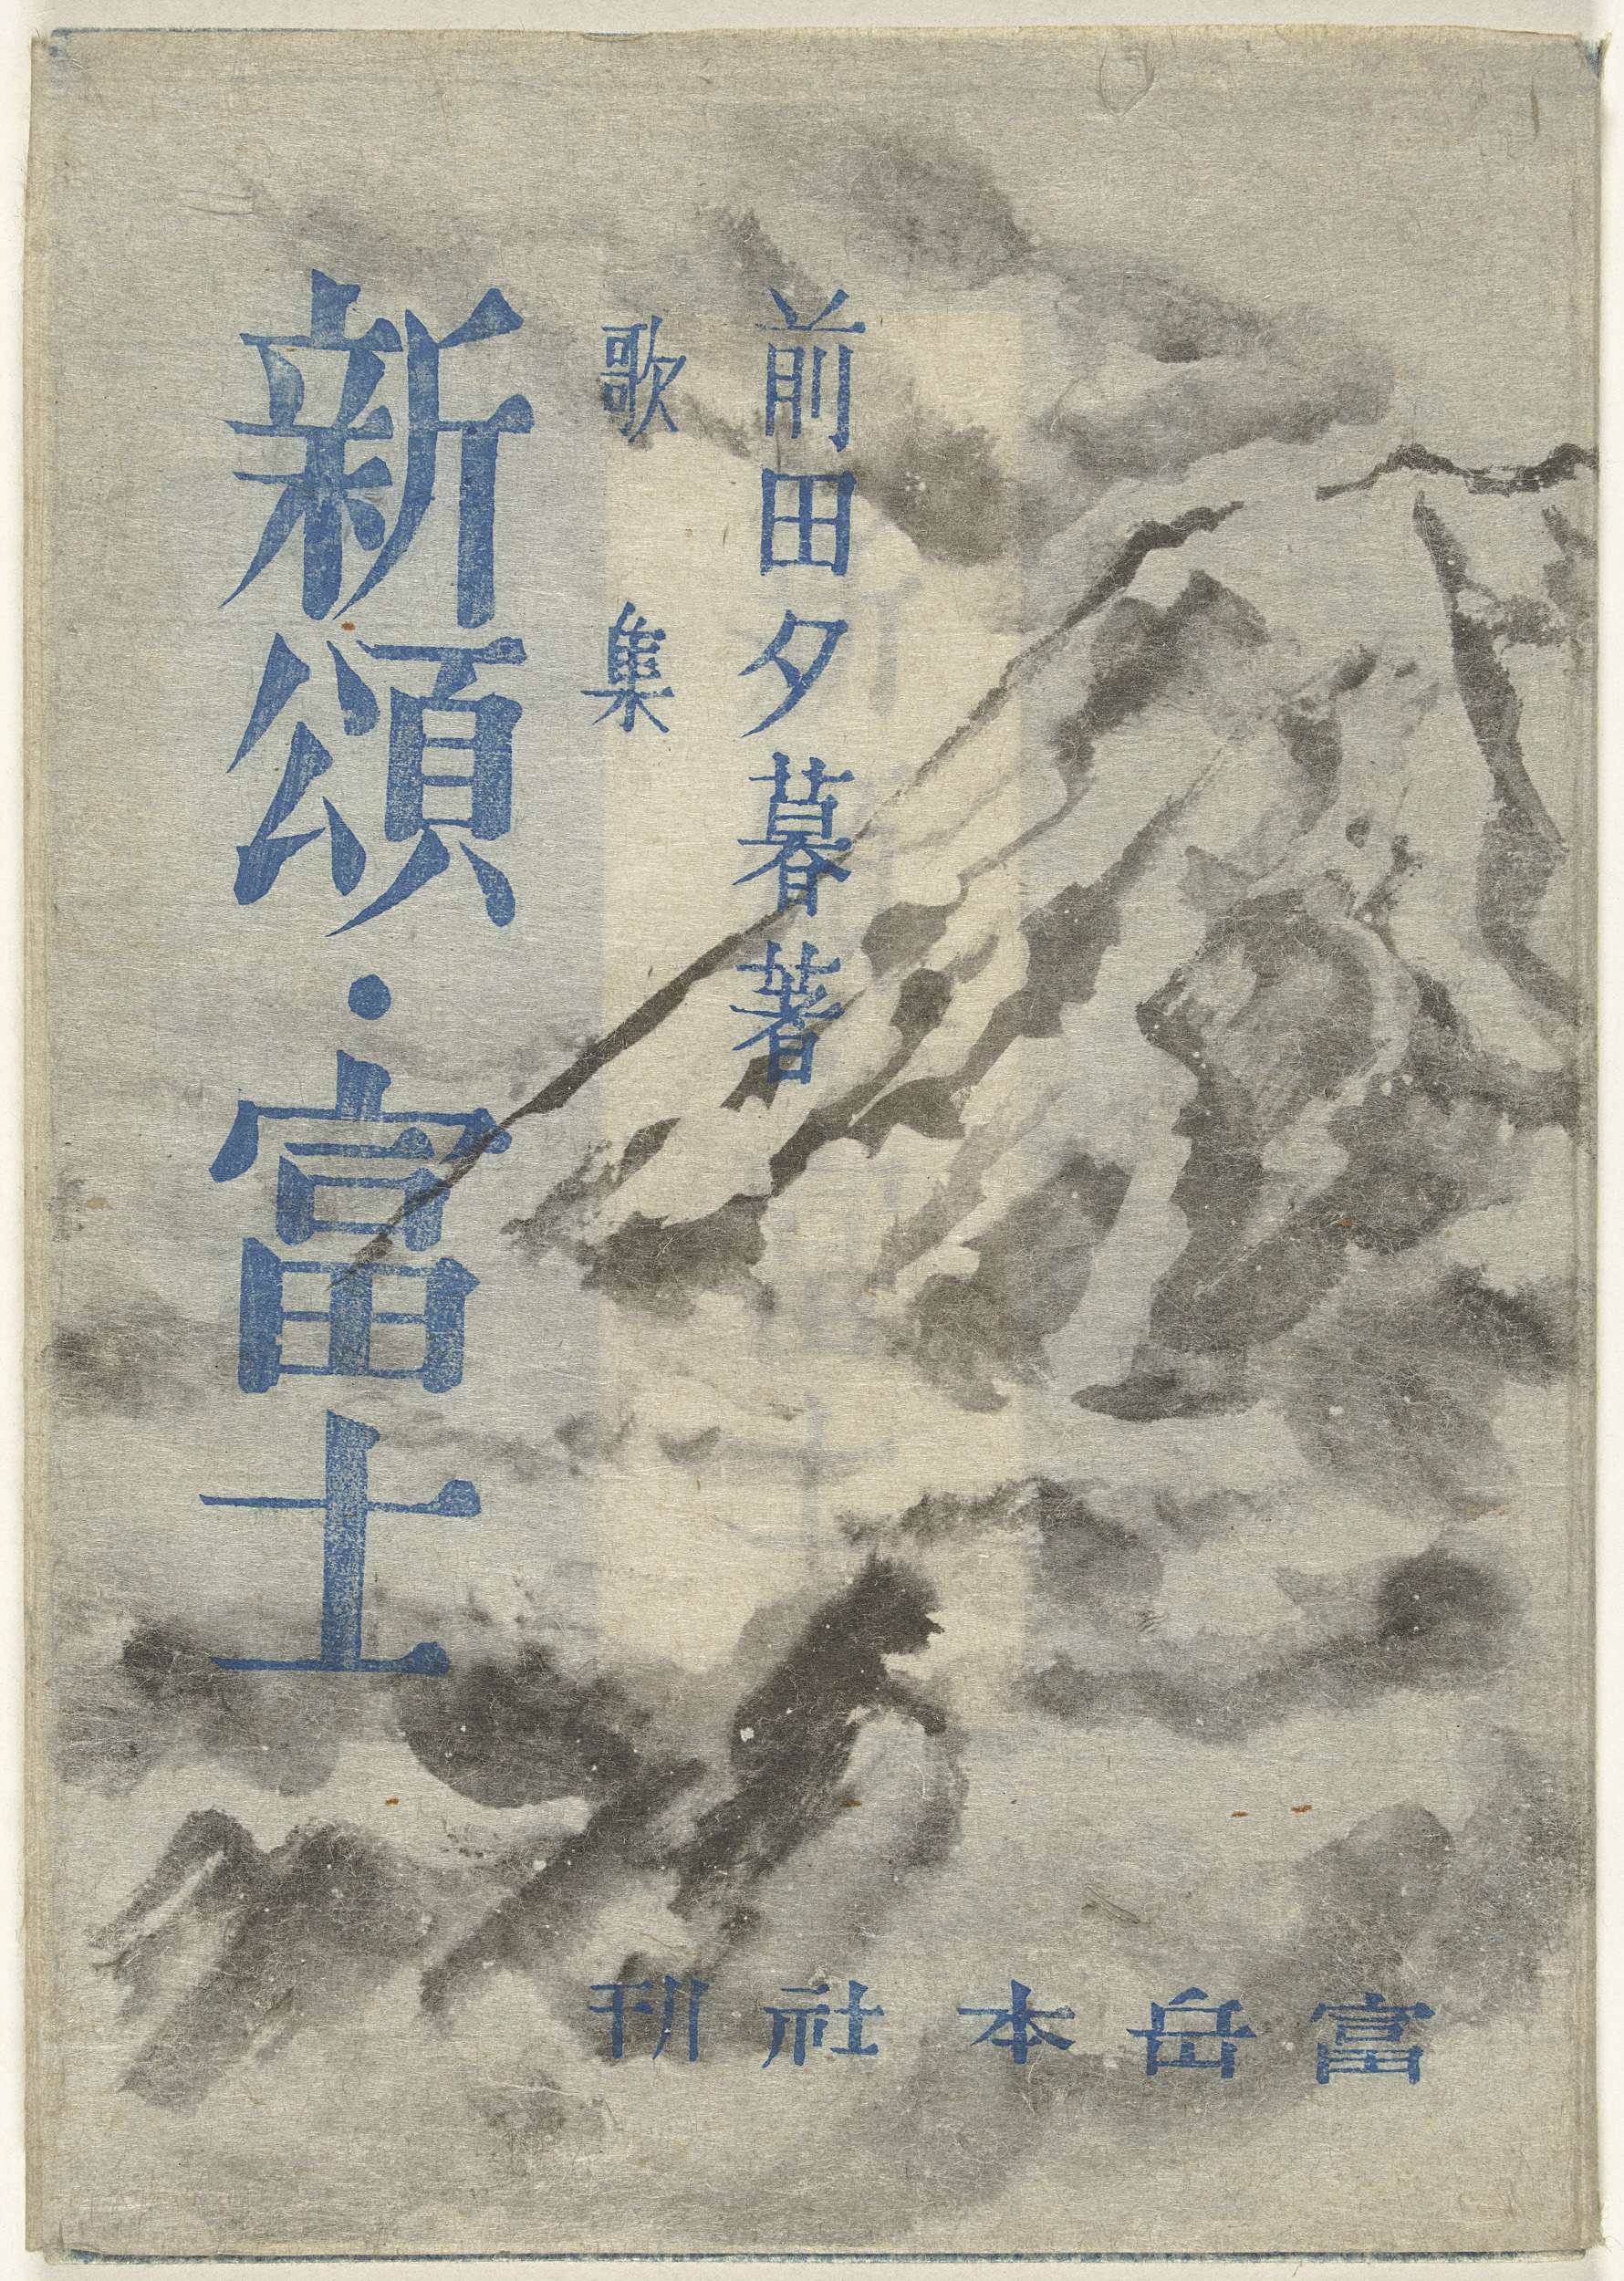 前田夕暮著
歌集
新頌・富士
富岳本社刊